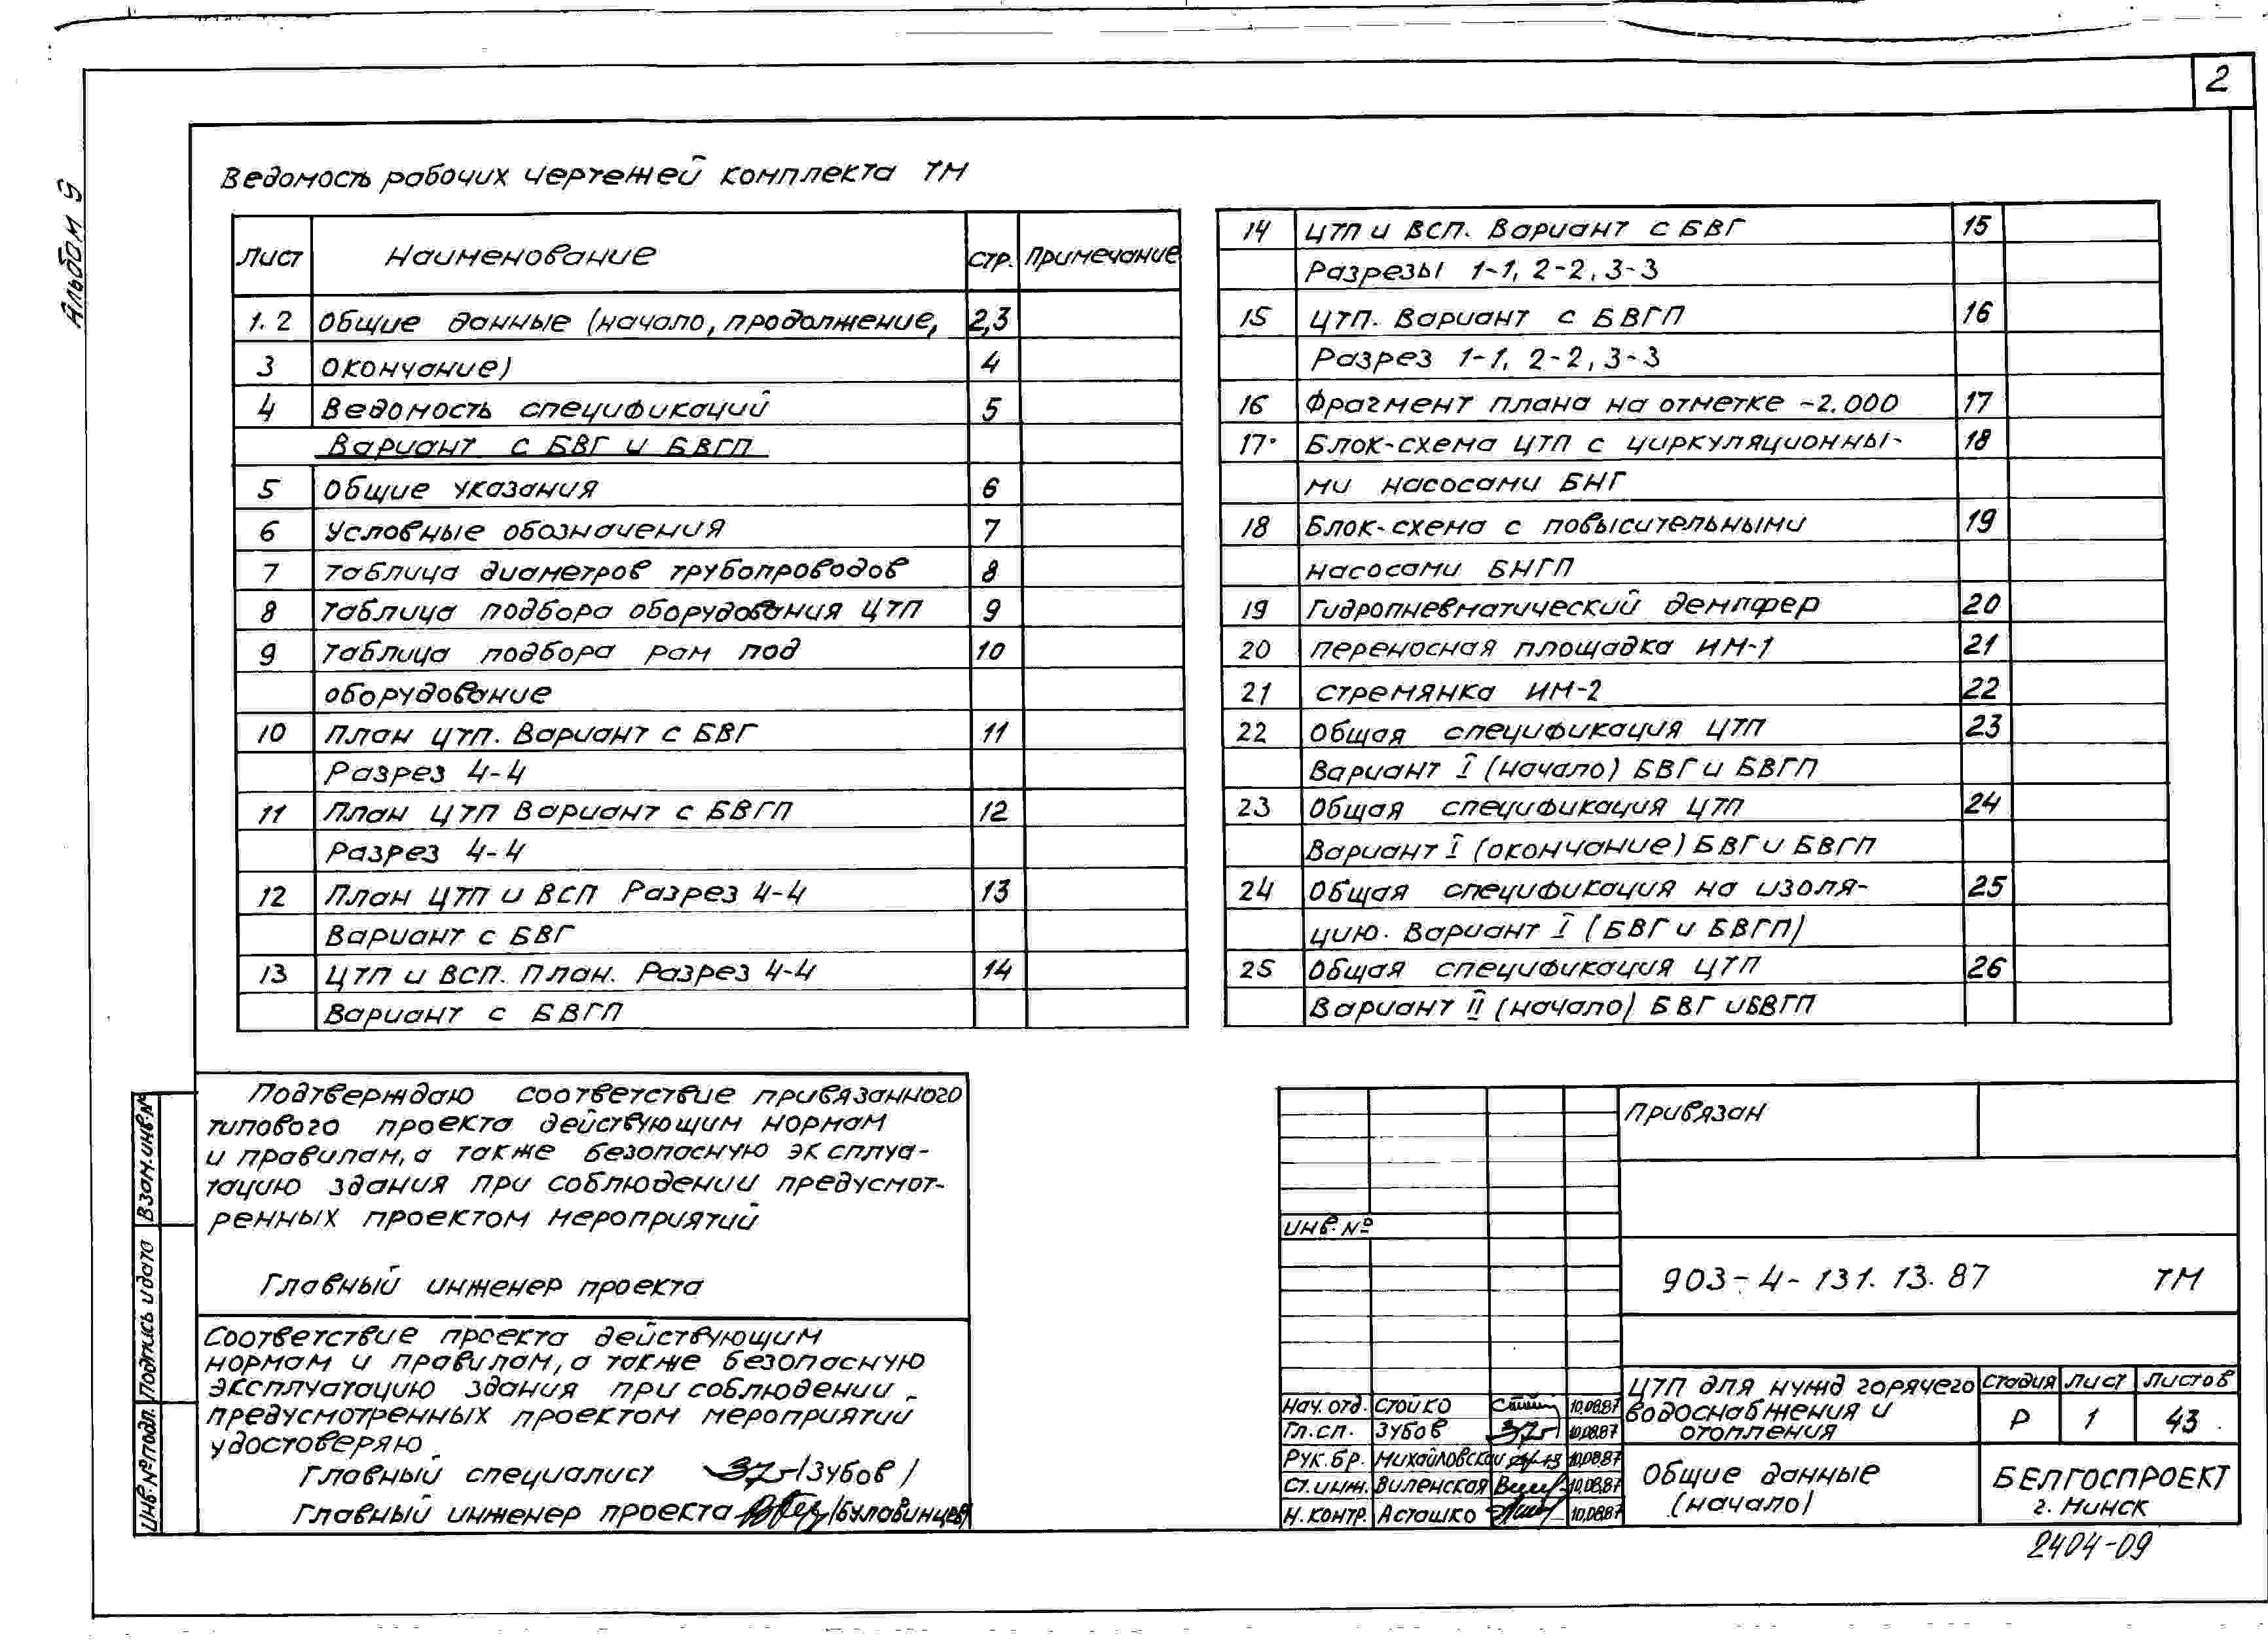 2
Альбом 9
Ведомость рабочих чертежей комплекта ТМ
Лист Наименование стр. Примечание
1.2 Общие данные (начало, продолжение, 2,3
3 окончание) 4
4 Ведомость спецификаций 5
Вариант с БВГ и БВГП
5 Общие указания 6
6 Условные обозначения 7
7 Таблица диаметров трубопроводов 8
8 Таблица подбора оборудования ЦТП 9
9 Таблица подбора рам под 10
оборудование
10 План ЦТП. Вариант с БВГ 11
Разрез 4-4
11 План ЦТП Вариант с БВГП 12
Разрез 4-4
12 План ЦТП и ВСП Разрез 4-4 13
Вариант с БВГ
13 ЦТП и ВСП. План. Разрез 4-4 14
Вариант с БВГП
14 ЦТП и ВСП. Вариант с БВГ 15
Разрезы 1-1, 2-2, 3-3
15 ЦТП. Вариант с БВГП 16
Разрез 1-1, 2-2, 3-3
16 Фрагмент плана на отметке -2.000 17
17 Блок-схема ЦТП с циркуляционны- 18
ми насосами БНГ
18 Блок-схема с повысительными 19
насосами БНГП
19 Гидропневматический демпфер 20
20 Переносная площадка ИМ-1 21
21 Стремянка ИМ-2 22
22 Общая спецификация ЦТП 23
Вариант I (начало) БВГ и БВГП
23 Общая спецификация ЦТП 24
Вариант I (окончание) БВГ и БВГП
24 Общая спецификация на изоля- 25
цию. Вариант I (БВГ и БВГП)
25 Общая спецификация ЦТП 26
Вариант II (начало) БВГ и БВГП
Подтверждаю соответствие привязанного
типового проекта действующим нормам
и правилам, а также безопасную эксплуа-
тацию здания при соблюдении предусмот-
ренных проектом мероприятий
Главный инженер проекта
Соответствие проекта действующим
нормам и правилам, а также безопасную
эксплуатацию здания при соблюдении
предусмотренных проектом мероприятий
удостоверяю
Главный специалист /Зубов/
Главный инженер проекта /Булавинцев/
Взам.инв.№
Подпись и дата
Инв.№ подл.
Привязан
Инв.№
903-4-131.13.87 ТМ
Нач.отд. Стойко 10.08.87
Гл.сп. Зубов 10.08.87
Рук.бр. Михайловская 10.08.87
Ст.инж. Виленская 10.08.87
Н.контр. Асташко 10.08.87
ЦТП для нужд горячего
водоснабжения и
отопления
Стадия Лист Листов
Р 1 43
Общие данные
(начало)
БЕЛГОСПРОЕКТ
г. Минск
2404-09